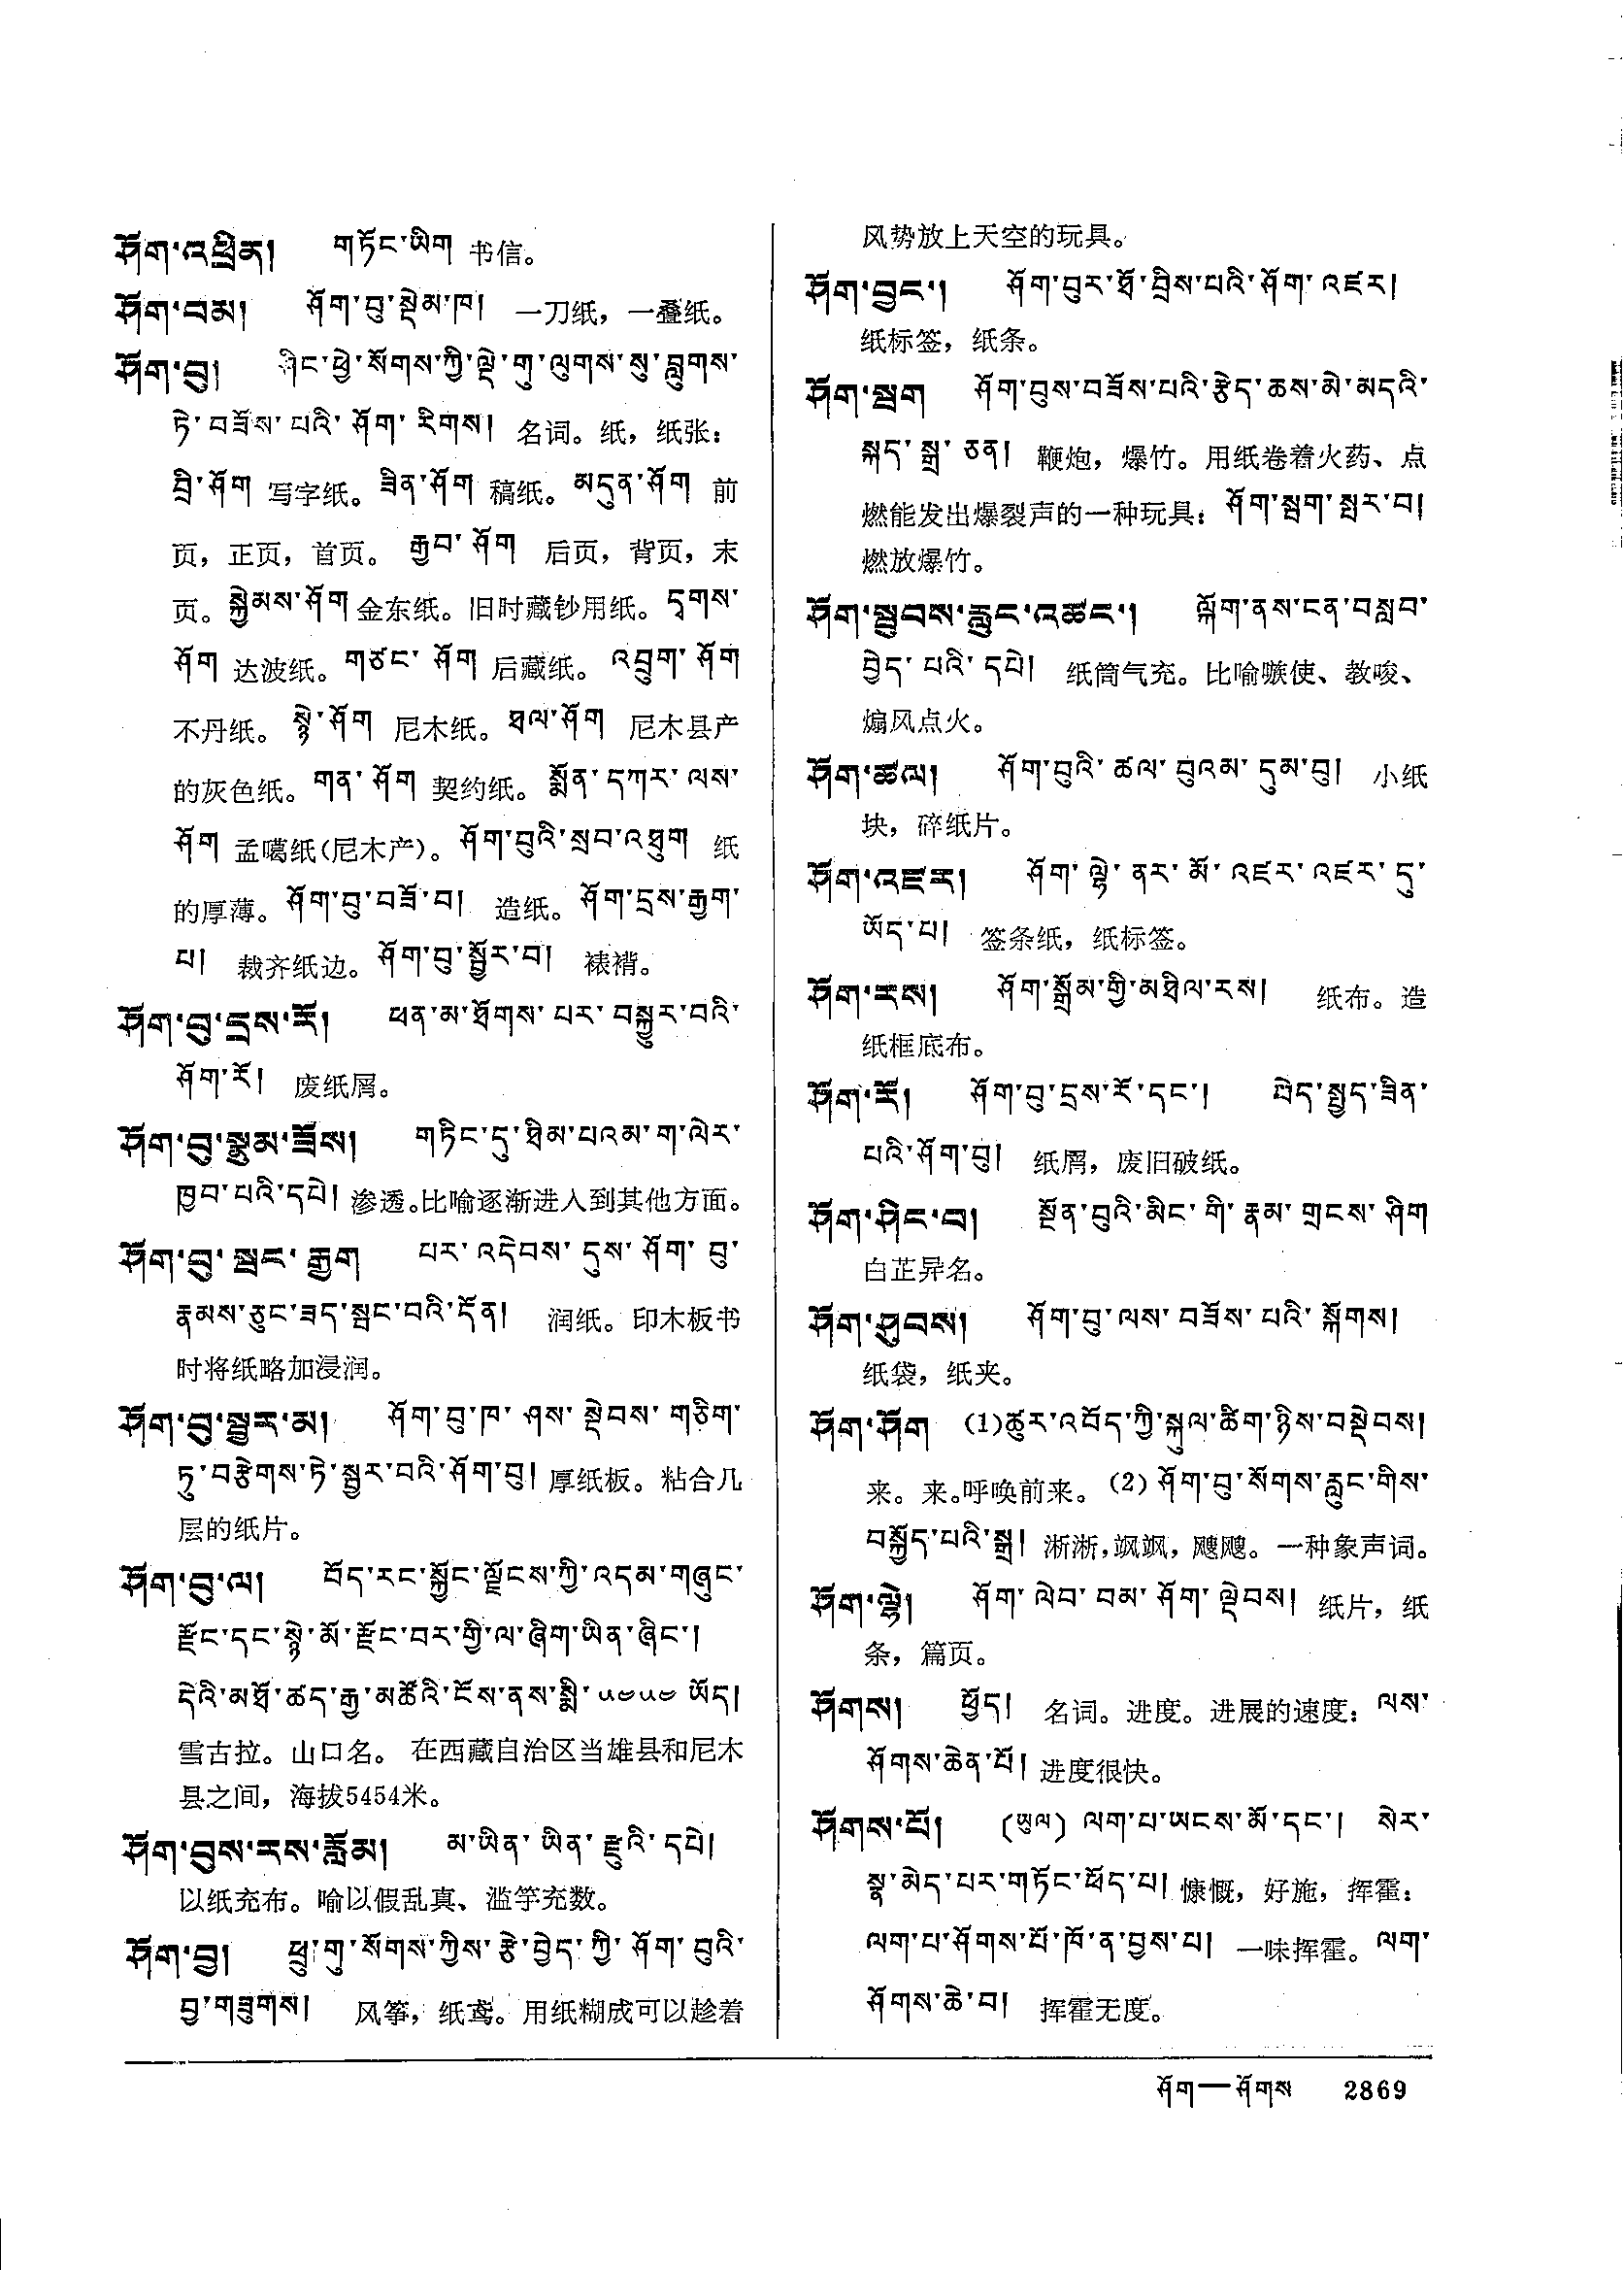 ཤོག་འཕྲིན། གཏོང་ཡིག 书信。
ཤོག་བམ། ཤོག་བུ་སྡེམ་ཁ། 一刀纸，一叠纸。
ཤོག་བུ། ཤིང་ཕྱེ་སོགས་ཀྱི་ལྡེ་གུ་ལུགས་སུ་བླུགས་
ཏེ་བཟོས་པའི་ཤོག་རིགས། 名词。纸，纸张：
བྲི་ཤོག 写字纸。ཟིན་ཤོག 稿纸。མདུན་ཤོག 前
页，正页，首页。རྒྱབ་ཤོག 后页，背页，末
页。སྐྱེམས་ཤོག 金东纸。旧时藏钞用纸。དྭགས་
ཤོག 达波纸。གཙང་ཤོག 后藏纸。འབྲུག་ཤོག
不丹纸。སྙེ་ཤོག 尼木纸。ཐལ་ཤོག 尼木县产
的灰色纸。གན་ཤོག 契约纸。སྨོན་དཀར་ལས་
ཤོག 孟噶纸(尼木产)。ཤོག་བུའི་སྲབ་འཐུག 纸
的厚薄。ཤོག་བུ་བཟོ་བ། 造纸。ཤོག་དྲས་རྒྱག་
པ། 裁齐纸边。ཤོག་བུ་སྦྱོར་བ། 裱褙。
ཤོག་བུ་དྲས་རོ། ཕན་མ་ཐོགས་པར་བསྐྱུར་བའི་
ཤོག་རོ། 废纸屑。
ཤོག་བུ་སྣུམ་ཟོས། གཏིང་དུ་ཐིམ་པའམ་ག་ལེར་
ཁྱབ་པའི་དཔེ། 渗透。比喻逐渐进入到其他方面。
ཤོག་བུ་སྦང་རྒྱག པར་འདེབས་དུས་ཤོག་བུ་
རྣམས་ཅུང་ཟད་སྦང་བའི་དོན། 润纸。印木板书
时将纸略加浸润。
ཤོག་བུ་སྦྱར་མ། ཤོག་བུ་ཁ་ཤས་སྡེབས་གཅིག་
ཏུ་བརྩེགས་ཏེ་སྦྱར་བའི་ཤོག་བུ། 厚纸板。粘合几
层的纸片。
ཤོག་བུ་ལ། བོད་རང་སྐྱོང་ལྗོངས་ཀྱི་འདམ་གཞུང་
རྫོང་དང་སྙེ་མོ་རྫོང་བར་གྱི་ལ་ཞིག་ཡིན་ཞིང་།
དེའི་མཐོ་ཚད་རྒྱ་མཚོའི་ངོས་ནས་སྨི་༥༤༥༤ ཡོད།
雪古拉。山口名。在西藏自治区当雄县和尼木
县之间，海拔5454米。
ཤོག་བུས་རས་རློམ། མ་ཡིན་ཡིན་རྫུའི་དཔེ།
以纸充布。喻以假乱真、滥竽充数。
ཤོག་བྱ། ཕྲུ་གུ་སོགས་ཀྱིས་རྩེ་བྱེད་ཀྱི་ཤོག་བུའི་
བྱ་གཟུགས། 风筝，纸鸢。用纸糊成可以趁着
风势放上天空的玩具。
ཤོག་བྱང་། ཤོག་བུར་ཐོ་བྲིས་པའི་ཤོག་འཛར།
纸标签，纸条。
ཤོག་སྦག ཤོག་བུས་བཟོས་པའི་རྩེད་ཆས་མེ་མདའི་
སྐད་སྒྲ་ཅན། 鞭炮，爆竹。用纸卷着火药、点
燃能发出爆裂声的一种玩具：ཤོག་སྦག་སྤར་བ།
燃放爆竹。
ཤོག་སྦུབས་རླུང་འཚང་། ལྐོག་ནས་ངན་བསླབ་
བྱེད་པའི་དཔེ། 纸筒气充。比喻嗾使、教唆、
煽风点火。
ཤོག་ཚལ། ཤོག་བུའི་ཚལ་བུའམ་དུམ་བུ། 小纸
块，碎纸片。
ཤོག་འཛར། ཤོག་ལྷེ་ནར་མོ་འཛར་འཛར་དུ་
ཡོད་པ། 签条纸，纸标签。
ཤོག་རས། ཤོག་སྒྲོམ་གྱི་མཐིལ་རས། 纸布。造
纸框底布。
ཤོག་རོ། ཤོག་བུ་དྲས་རོ་དང་། བེད་སྤྱད་ཟིན་
པའི་ཤོག་བུ། 纸屑，废旧破纸。
ཤོག་ཤིང་བ། སྔོན་བུའི་མིང་གི་རྣམ་གྲངས་ཤིག
白芷异名。
ཤོག་ཤུབས། ཤོག་བུ་ལས་བཟོས་པའི་སྐོགས།
纸袋，纸夹。
ཤོག་ཤོག (1)ཚུར་འབོད་ཀྱི་སྐུལ་ཚིག་ཉིས་བསྡེབས།
来。来。呼唤前来。(2)ཤོག་བུ་སོགས་རླུང་གིས་
བསྐྱོད་པའི་སྒྲ། 淅淅，飒飒，飕飕。一种象声词。
ཤོག་ལྷེ། ཤོག་ལེབ་བམ་ཤོག་ལྡེབས། 纸片，纸
条，篇页。
ཤོགས། ཕྱོད། 名词。进度。进展的速度：ལས་
ཤོགས་ཆེན་པོ། 进度很快。
ཤོགས་པོ། (ཡུལ) ལག་པ་ཡངས་མོ་དང་། སེར་
སྣ་མེད་པར་གཏོང་ཕོད་པ། 慷慨，好施，挥霍：
ལག་པ་ཤོགས་པོ་ཁོ་ན་བྱས་པ། 一味挥霍。ལག་
ཤོགས་ཆེ་བ། 挥霍无度。
ཤོག—ཤོགས 2869